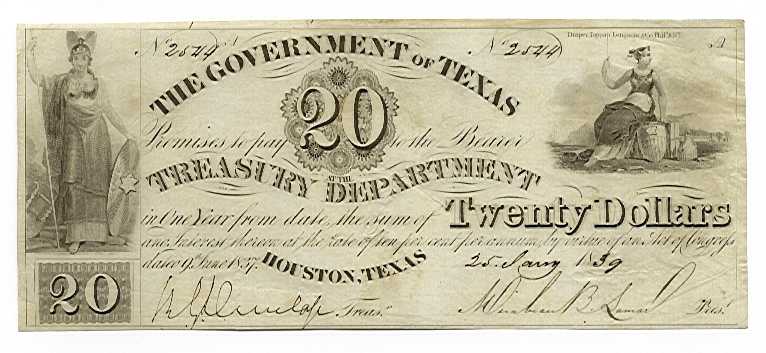 Draper, Toppan, Longacre & Co. Phil. & N.Y.
No 2544 A No 2544 A
THE GOVERNMENT OF TEXAS
20
Promises to pay to the Bearer
AT THE
TREASURY DEPARTMENT
in One Year from date, the sum of Twenty Dollars
and Interest thereon at the rate of ten per cent per annum, by virtue of an Act of Congress
dated 9th June 1837. HOUSTON, TEXAS 25 Jany 1839
20 Treasr Mirabeau B. Lamar Prest